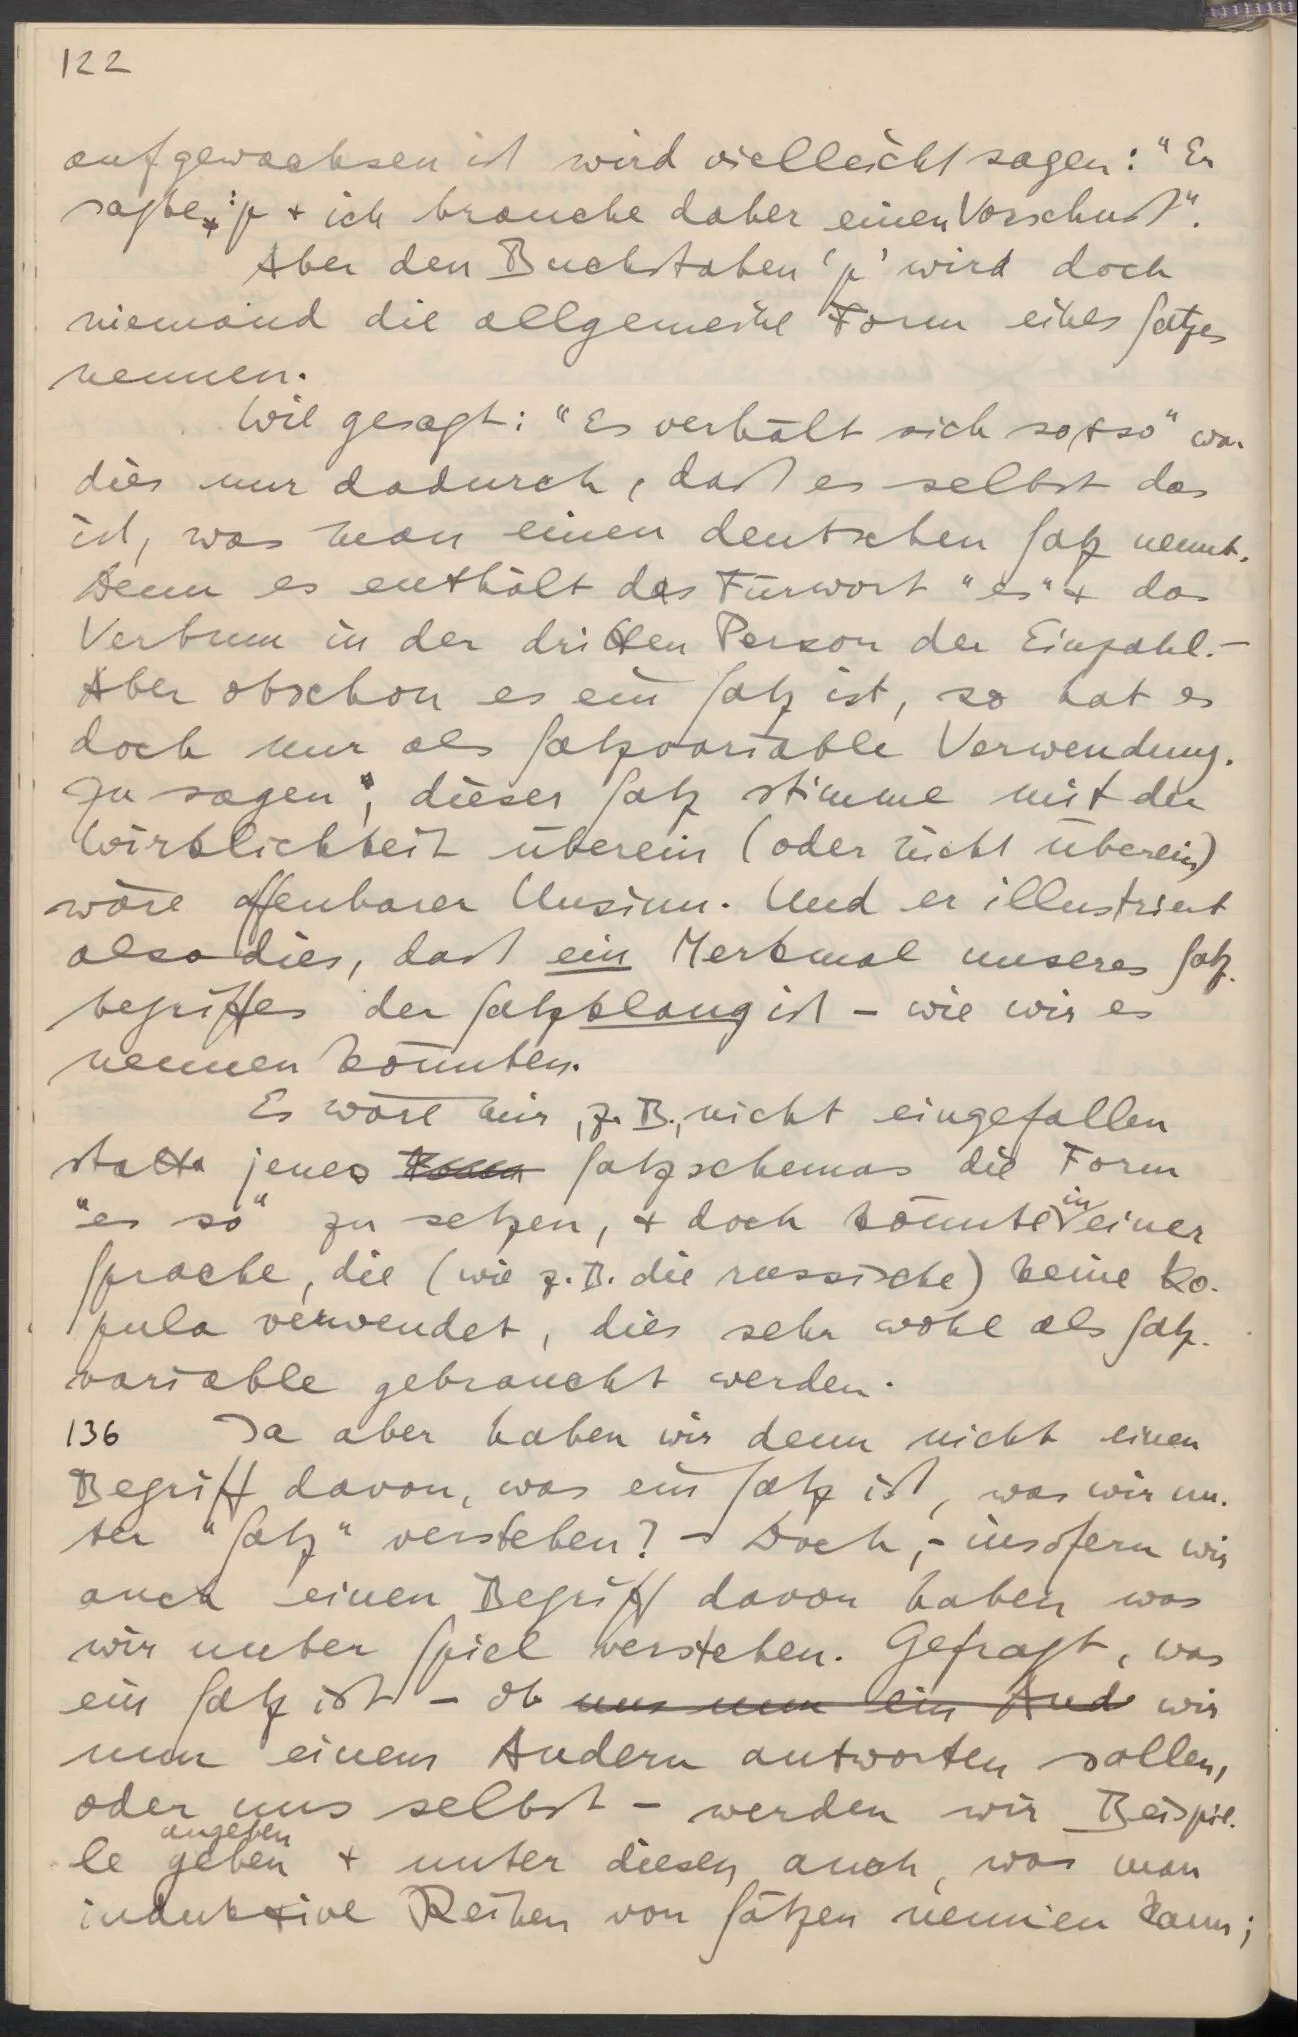 122
aufgewachsen ist wird vielleicht sagen: "Er
sagte: p + ich brauche daher einen Vorschuß".
Aber den Buchstaben 'p' wird doch
niemand die allgemeine Form eines Satzes
nennen.
Wie gesagt: "Es verhält sich so+so" war
dies nur dadurch, daß es selbst das
ist, was man einen deutschen Satz nennt.
Denn es enthält das Fürwort "es" + das
Verbum in der dritten Person der Einzahl. –
Aber obschon es ein Satz ist, so hat es
doch nur als Satzvariable Verwendung.
Zu sagen, dieser Satz stimme mit der
Wirklichkeit überein (oder nicht überein)
wäre offenbarer Unsinn. Und er illustriert
also dies, daß ein Merkmal unseres Satz-
begriffes der Satzklang ist – wie wir es
nennen könnten.
Es wäre mir, z.B., nicht eingefallen
statt jenes Form Satzschemas die Form
"es so" zu setzen, + doch könnte in einer
Sprache, die (wie z.B. die russische) keine Ko-
pula verwendet, dies sehr wohl als Satz-
variable gebraucht werden.
136 Ja aber haben wir denn nicht einen
Begriff davon, was ein Satz ist, was wir un-
ter "Satz" verstehen? – Doch, – insofern wir
auch einen Begriff davon haben was
wir unter Spiel verstehen. Gefragt, was
ein Satz ist – ob uns nun ein And wir
nun einem Andern antworten sollen,
oder uns selbst – werden wir Beispie-
angeben
le geben + unter diesen auch, was man
induktive Reihen von Sätzen nennen kann;